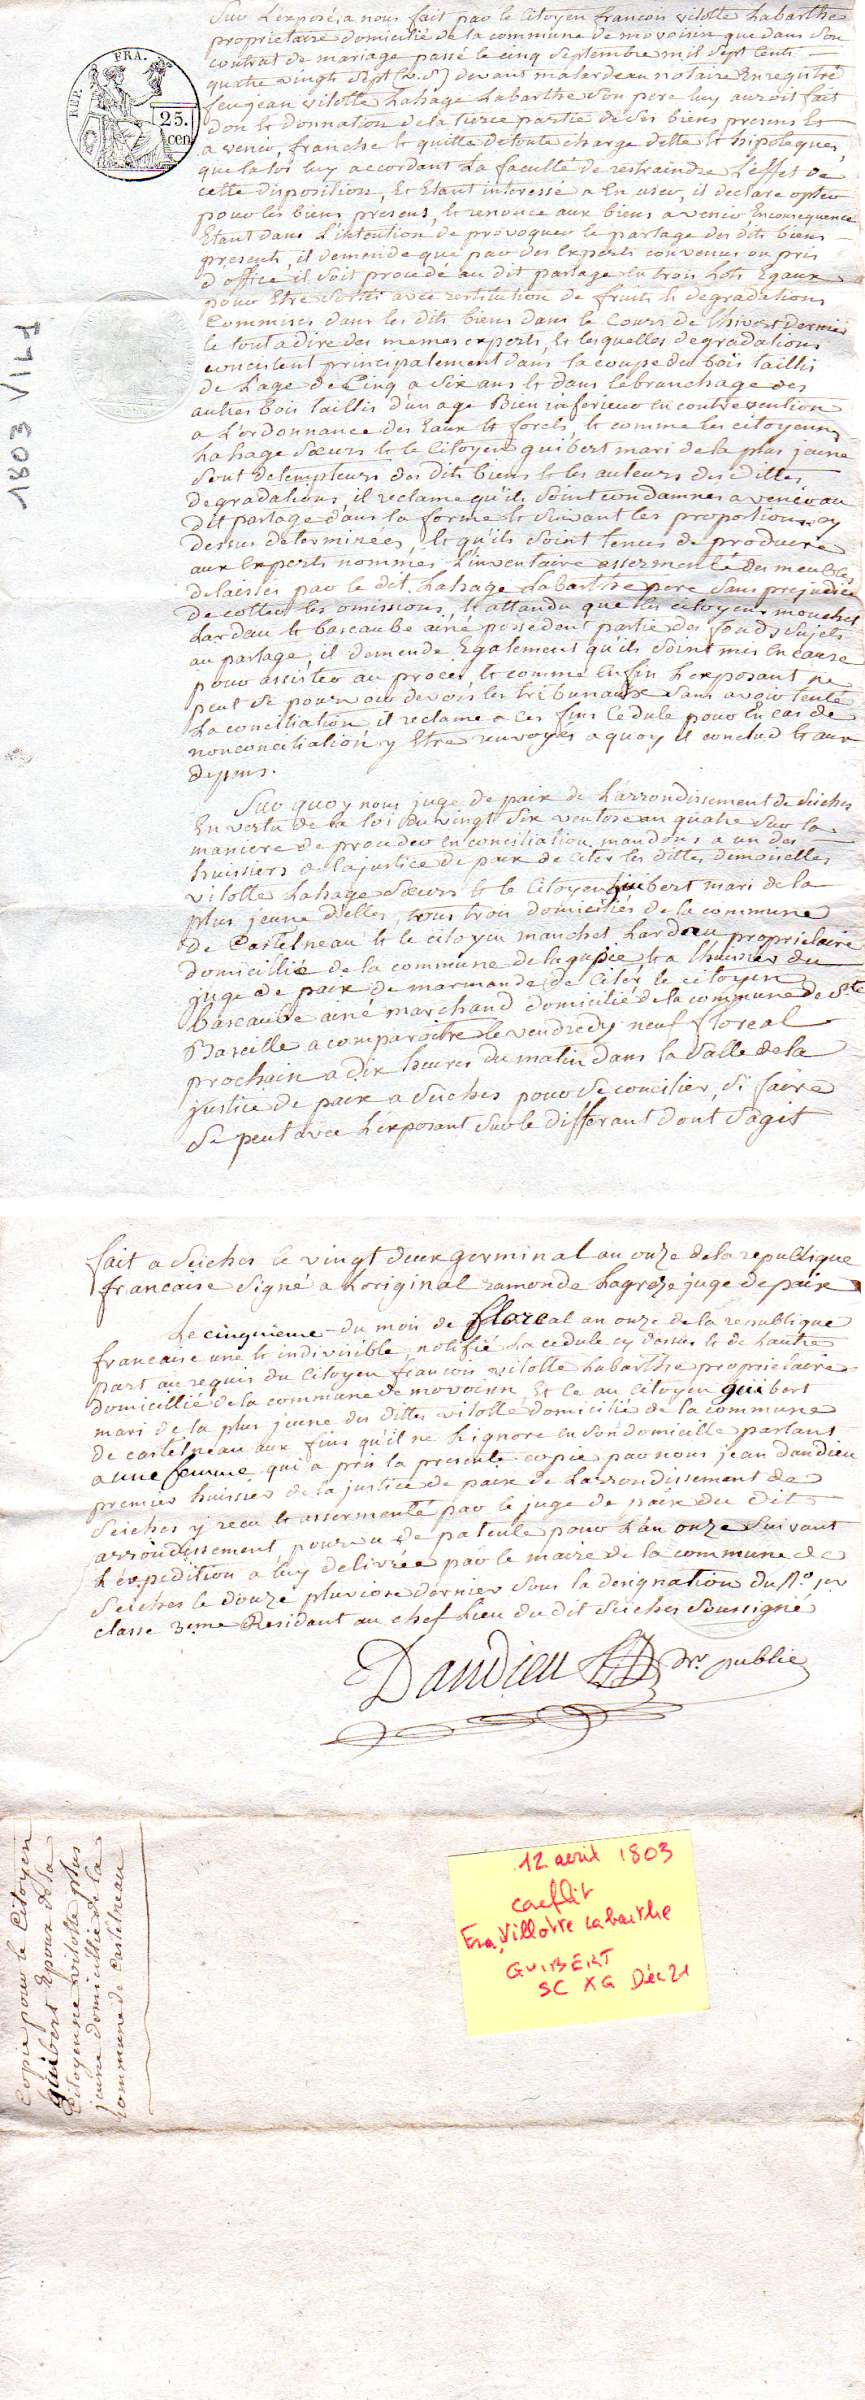 Sur L'exposé, a nous fait par le Citoyen francois vilotte Labarthe
proprietaire domicilié de la commune de movoisin que dans son
contrat de mariage passé le cinq septembre mil sept cents
quatre vingt sept (v.S) devant malardeau notaire Enregitré
feu jean vilotte Lahage Labarthe son pere luy auroit fait
don et donnation de la tierce partie de ses biens presens et
a venir, franche et quitte de toute charge dette et hipoteques,
que la loi luy accordant La faculté de restraindre L'effet de
cette disposition, Et Etant interessé a En user, il declare opter
pour les biens presens, et renonce aux biens avenir, Enconsequence
Etant dans L'intention de provoquer le partage des dits biens
presents, il demande que par des Experts convenus ou pris
d'office il soit procédé au dit partage en trois Lots Egaux
pour Etre sortis avec restitution de fruits et degradations
Commises dans les dits biens dans le Cours de l'hiver dernier
le tout a dire des memes experts, et lesquelles degradations
concistent principalement dans la coupe du bois taillis
de L'age de Cinq a six ans et dans lebranchage des
autres bois taillis d'un age Bien inferieur en contrevention
a L'ordonnance des Eaux et forets, et comme les citoyennes
Lahage Sœurs et le Citoyen guibert mari de la plus jeune
sont detempteurs des dits biens et les auteurs des dittes
degradations, il reclame qu'ils soint condamnes a venir au
dit partage dans la forme et suivant les proportions cy
dessus determinées, et qu'ils soint tenus de produire
aux Experts nommés L'inventaire assermenté des meubles
delaissés par le dit Lahage Labarthe pere sans prejudice
de cotter les omissions, et attandu que les citoyens mouchet
Lardau et bascaube ainé possedent partie des fonds sujets
au partage, il demande Egalement qu'ils soint mis en cause
pour assister au procés, et comme Enfin L'exposant ne
peut se pourvoir devers les tribunaux sans avoir tenté
La conciliation il reclame a ces fins Cedule pour En cas de
nonconciliation y Etre renvoyés a quoy il conclud et aux
depens.
Sur quoy nous juge de paix de L'arrondissement de Seiches
En vertu de la loi du vingt six ventose an quatre sur la
maniere de proceder en conciliation mandons a un des
huissiers de la justice de paix de citer les dittes demoiselles
vilotte Lahage Sœurs et le Citoyen guibert mari de la
plus jeune d'elles, tous trois domiciliés de la commune
de Castelneau et le citoyen mouchet Lardau proprietaire
domicillié de la commune de lagupie et a l'huissier du
juge de paix de marmande de Citer le citoyen
bascaube ainé marchand domicilié de la commune de Ste
Bazeille a comparoitre le vendredy neuf floreal
prochain a dix heures du matin dans la salle de la
justice de paix a Seiches pour se concilier, si faire
se peut avec L'exposant sur le differant dont s'agit
REP. FRA.
25.
cen
1803 VIL1
fait a Seiches le vingt deux germinal an onze de la republique
francaise signé a Loriginal ramonde Lagroze juge de paix
Le cinquieme du mois de floreal an onze de la republique
francaise une et indivisible, notifié La cedule cy dessus et de Lautre
part au requis du Citoyen francois vilotte Labarthe proprietaire
domicillié de la commune de movoisin, Et ce au Citoyen guibert
mari de la plus jeune des dittes vilotte domicilié de la commune
de castelneau aux fins qu'il ne L'ignore en son domicille parlant
a une femme qui a pris la presente copie par nous jean dandieu
premier huissier de la justice de paix de Larrondissement de
Seiches y recu et assermenté par le juge de paix du dit
arrondissement, pourvu de patente pour L'an onze suivant
L'expedition a luy delivrée par le maire de la commune de
Seiches le douze pluviose dernier sous la designation du No 1er
classe 3eme Residant au chef Lieu du dit Seiches Soussigné
Dandieu hr. public
Copie pour le Citoyen
guibert Epoux de la
Citoyenne vilotte plus
jeune domicilié de la
commune de Castelneau
12 avril 1803
conflit
Fra, Villotte Labarthe
GUIBERT
SC XG Déc 21